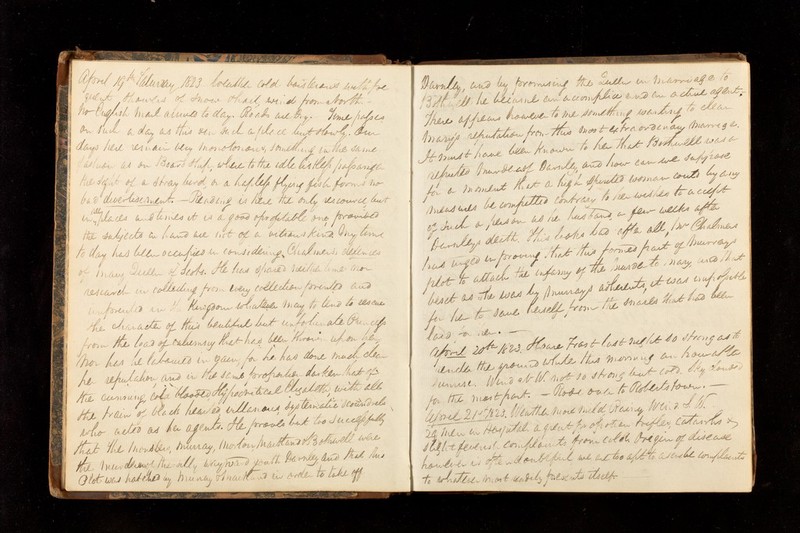 April 19th Saturday 1823 Weather cold boisterous with fre
quent showers of snow & hail, wind from North -
No English mail arrived to day. Roads are dry. Time passes
on such a day as this in such a place but slowly. Our
days here remain very monotonous, something in the same
fashion as on Board Ship, where to the idle listless passenger
the sight of a stray bird, or a hapless flying fish forms no
bad divertisement - Reading is here the only resource but
in all places and times it is a good & profitable one, provided
the subjects in hand are not of a vicious kind. My time
to day has been occupied in considering Chalmers defence
of Mary Queen of Scots. He has spared neither time nor
research in collecting from every collection printed and
unprinted in the Kingdom whatever may tend to rescue
the character of this beautiful but unfortunate Princess
from the load of calumny that has been thrown upon her
Nor has he laboured in vain, for he has done much to clear
her reputation and in the same proportion darken that of
the cunning cold blooded Hypocritical Elizabeth, with all
the train of black hearted villainous, systematic scoundrels
who acted as her agents. He proves but too successfully
that the monsters, Murray, Morton, Maitland & Bothwell were
the murderers of the youth Darnley and that this
Plot was hatched by Murray & Maitland in order to take off
Darnley, and by promising the Queen in marriage to
Bothwell he became an accomplice and an active agent.
There appears however to me something wanting to clear
Mary's reputation from this most extraordinary marriage.
It must have been known to her that Bothwell was a
reputed murderer of Darnley, and how can we suppose
for a moment that a high spirited woman could by any
measures be compelled contrary to her wishes to accept
of such a person as her husband a few weeks after
Darnley's death. This looks bad after all, tho' Chalmers
has urged in proving that this formed part of Murray's
plot to attach the infamy of the murder to Mary and that
beset as she was by Murray's adherents, it was impossible
for her to save herself from the snares that had been
laid for her. -
April 20th 1823. Hoare Frost last night so strong as to
render the ground white this morning an hour after
sunrise. Wind at W. not so strong but cold. Dry roads
for the most part. - Rode over to Robertstown. -
April 21st 1823. Weather more mild, Hazy, Wind S.W.
29 men in Hospital a great proportion trifling Catarrhs &
slight febrile complaints from cold. Origin of disease
however is often doubtful we are too apt to ascribe complaints
to whatever most readily presents itself